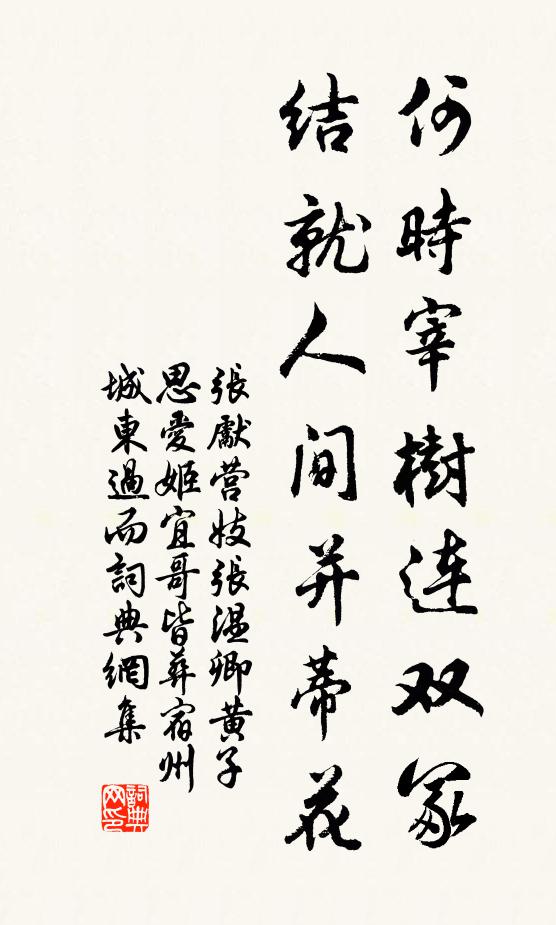 何時宰樹连双冢
结就人间并蒂花
張獻营妓張温卿黄子
思愛姬宜哥皆葬宿州
城東過而詞典網集
詞典
网印